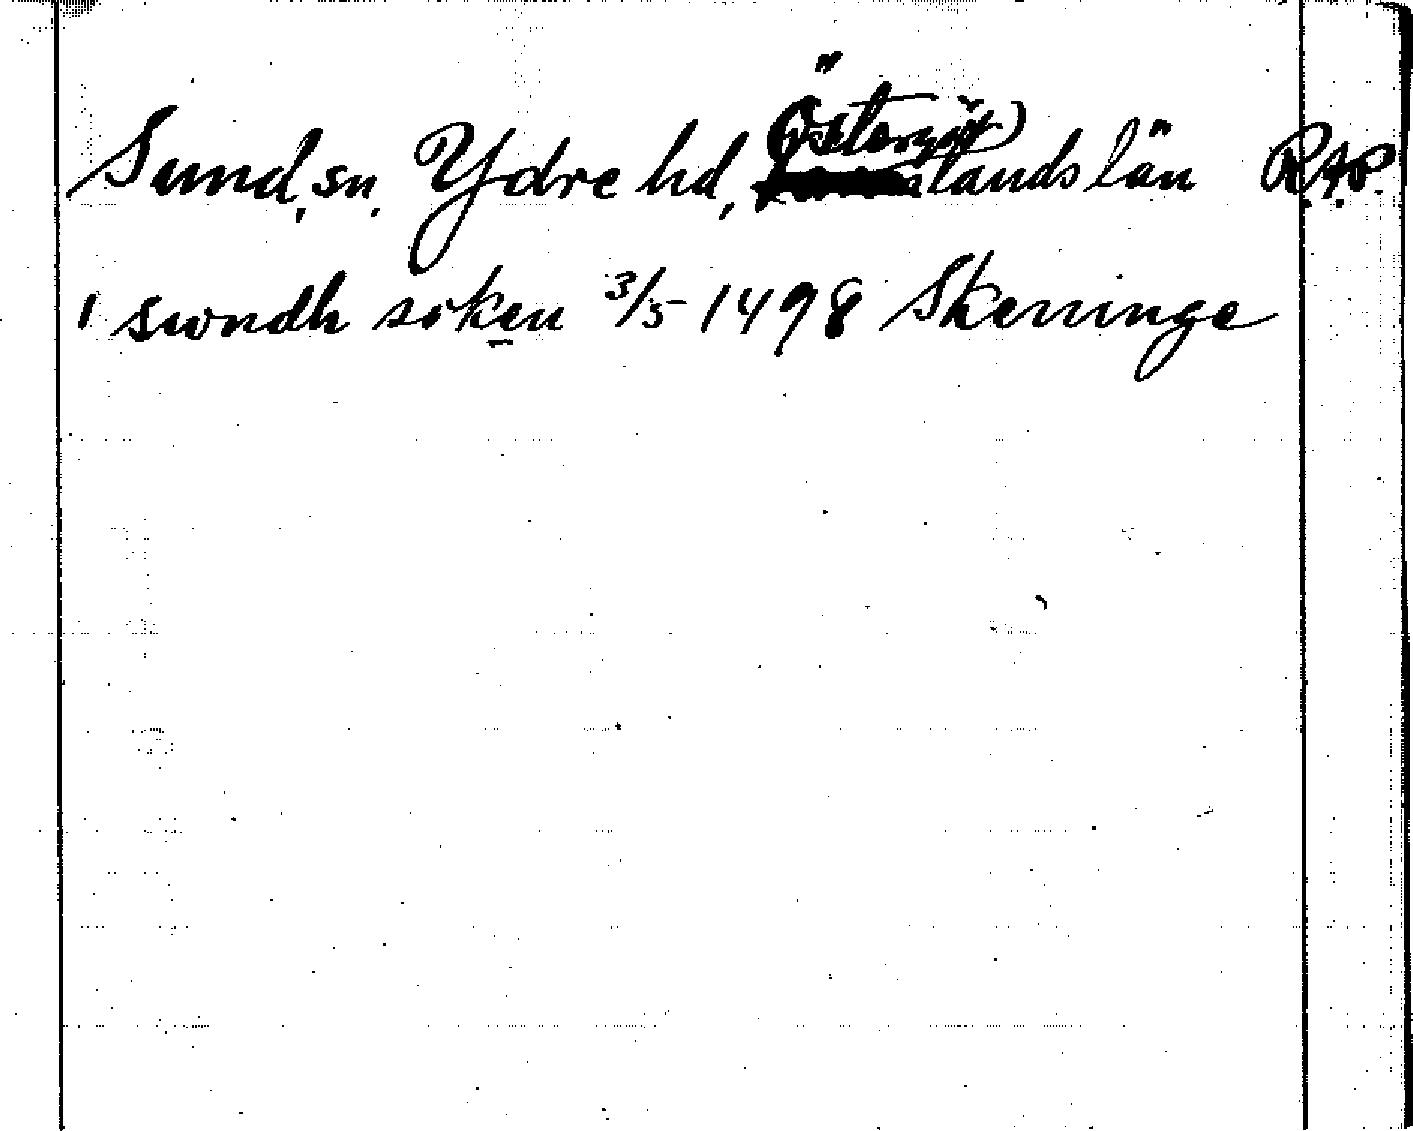 Sund, sn. Ydre hd, Östergötlands län R.A.P.
i swndh soken 3/5 1498 Skenninge